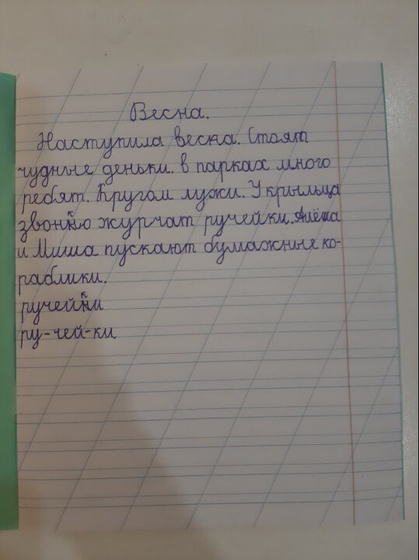 Весна.
Наступила весна. Стоят
чудные деньки. в парках много
ребят. Кругом лужи. У крыльца
звонко журчат ручейки. Алёша
и Миша пускают бумажные ко-
раблики.
ручейки
ру-чей-ки